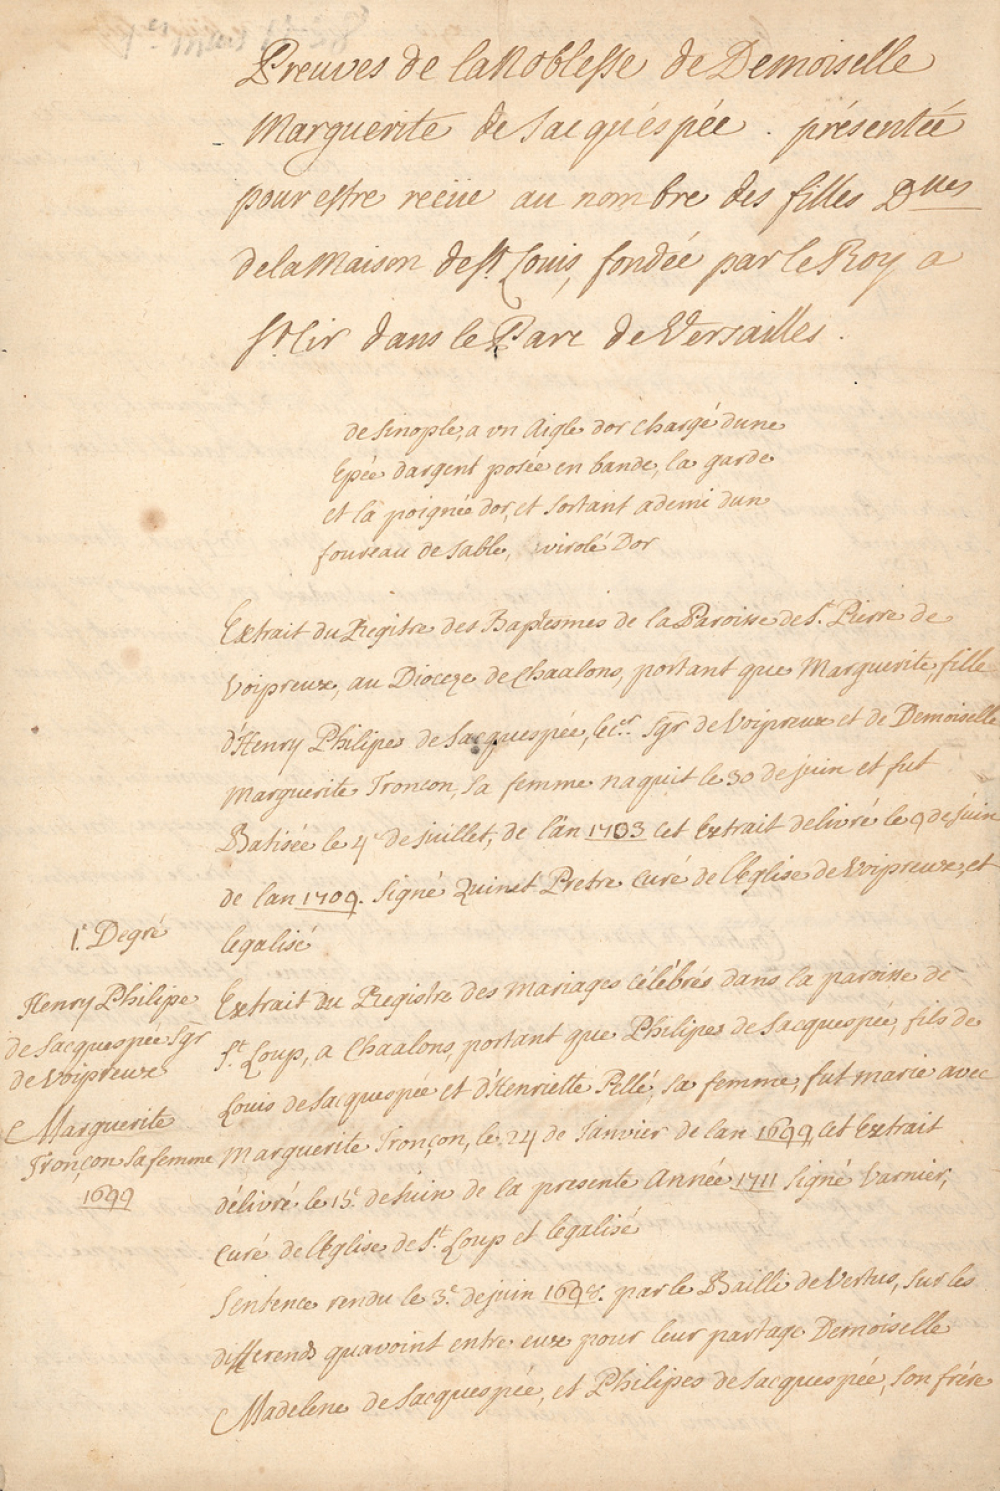 Preuves de la Noblesse de Demoiselle
Marguerite de Sacquéspée . présentée
pour estre reciie au nombre des filles Dlles
de la Maison de St. Louis, fondée par le Roy a
St. Cir dans le Parc de Versailles .
de sinople, a un Aigle dor chargé dune
Epée dargent posée en bande, la garde
et la poignée dor, et sortant a demi dun
foureau de sable, virolé Dor
Extrait du Registre des Baptesmes de la Paroisse de St. Pierre de
Voipreux, au Dioceze de Chaalons, portant que Marguerite, fille
d'Henry Philipes de Sacquespée, Ecr. Sgr de Voipreux et de Demoiselle
Marguerite Troncon, sa femme naquit le 30 de juin et fut
Batisée le 4e de juillet, de lan 1703 cet Extrait delivré le 9 de juin
de lan 1709. signé Quinet Pretre curé de l'Eglise de Voipreux, et
legalisé
1r. Degré
Henry Philipe
de Sacquespée Sgr
de Voipreux
Marguerite
Tronçon sa femme
1699
Extrait du Registre des Mariages célébrés dans la paroisse de
St. Loup, a Chaalons, portant que Philipes de Sacquespée, fils de
Louis de Sacquespée et d'Henriette Pellé, sa femme, fut marié avec
Marguerite Tronçon, le 24 de Janvier de lan 1699, cet Extrait
délivré le 15e. de Juin de la presente Année 1711 signé Varnier,
curé de l'Eglise de St. Loup et legalisé
Sentence rendu le 3e. de juin 1698. par le Bailli de Vertus, sur les
differends quavoint entre eux pour leur partage Demoiselle
Madelene de Sacquespée, et Philipes de Sacquespée, son frére